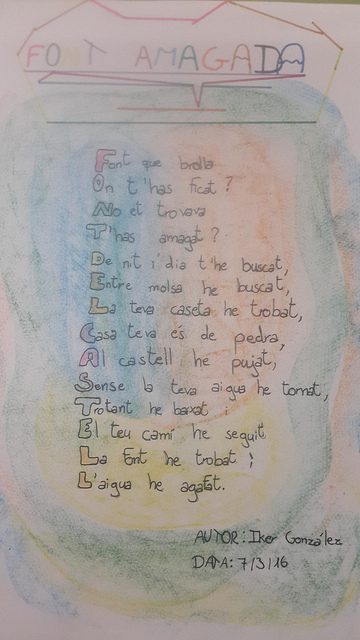 FONT AMAGADA
Font que brolla
On t'has ficat?
No et trovava
T'has amagat?
De nit i dia t'he buscat,
Entre molsa he buscat,
La teva caseta he trobat,
Casa teva és de pedra,
Al castell he pujat,
Sense la teva aigua he tornat,
Trotant he baixat i
El teu camí he seguit
La font he trobat i
L'aigua he agafat.
AUTOR: Iker González
DATA: 7/3/16